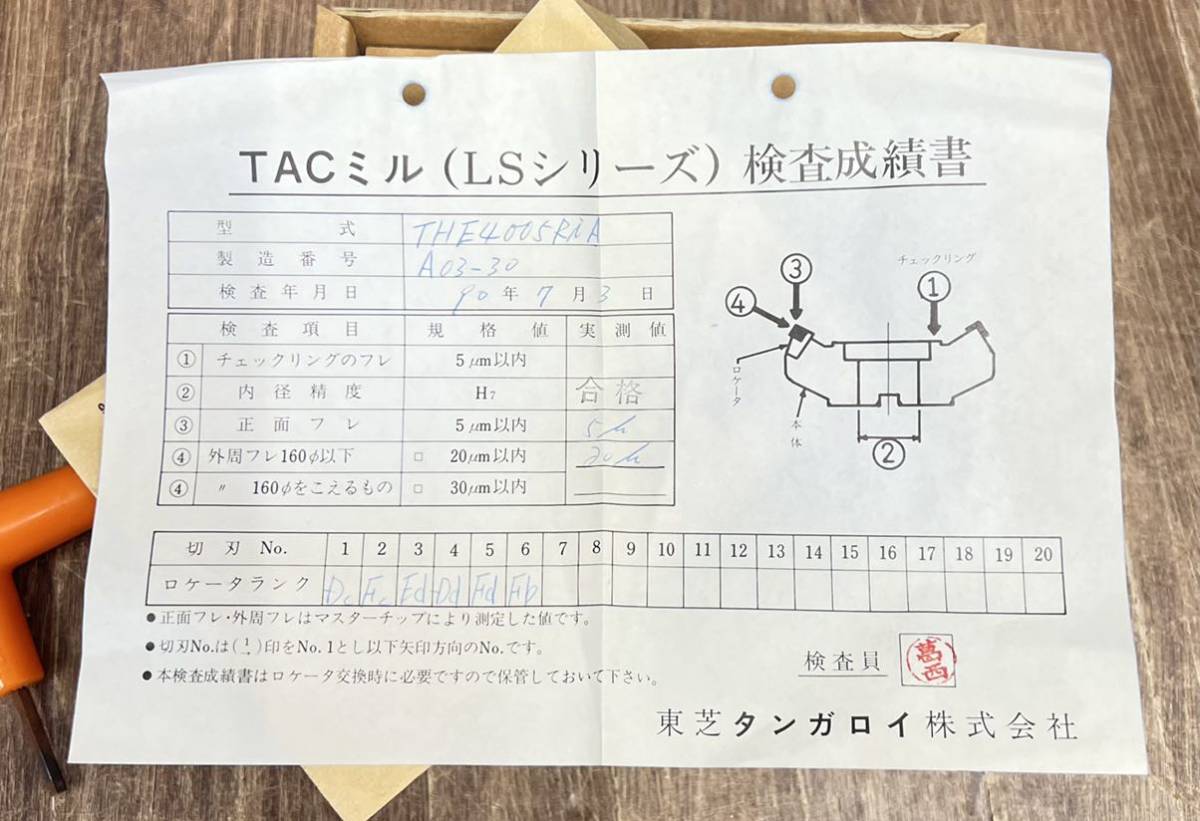 TACミル(LSシリーズ)検査成績書
型式 THE4005RIA
製造番号 A03-30
検査年月日 90年7月3日
検査項目 規格値 実測値
① チェックリングのフレ 5μm以内
② 内径精度 H7 合格
③ 正面フレ 5μm以内 5μ
④ 外周フレ160φ以下 □ 20μm以内 20μ
④ 〃 160φをこえるもの □ 30μm以内
③
④
チェックリング
①
ロケータ
本体
②
切刃 No. 1 2 3 4 5 6 7 8 9 10 11 12 13 14 15 16 17 18 19 20
ロケータランク Dc Fc Ed Dd Fd Fb
●正面フレ・外周フレはマスターチップにより測定した値です。
●切刃No.は(1→)印をNo.1とし以下矢印方向のNo.です。
●本検査成績書はロケータ交換時に必要ですので保管しておいて下さい。
検査員 葛西
東芝タンガロイ株式会社